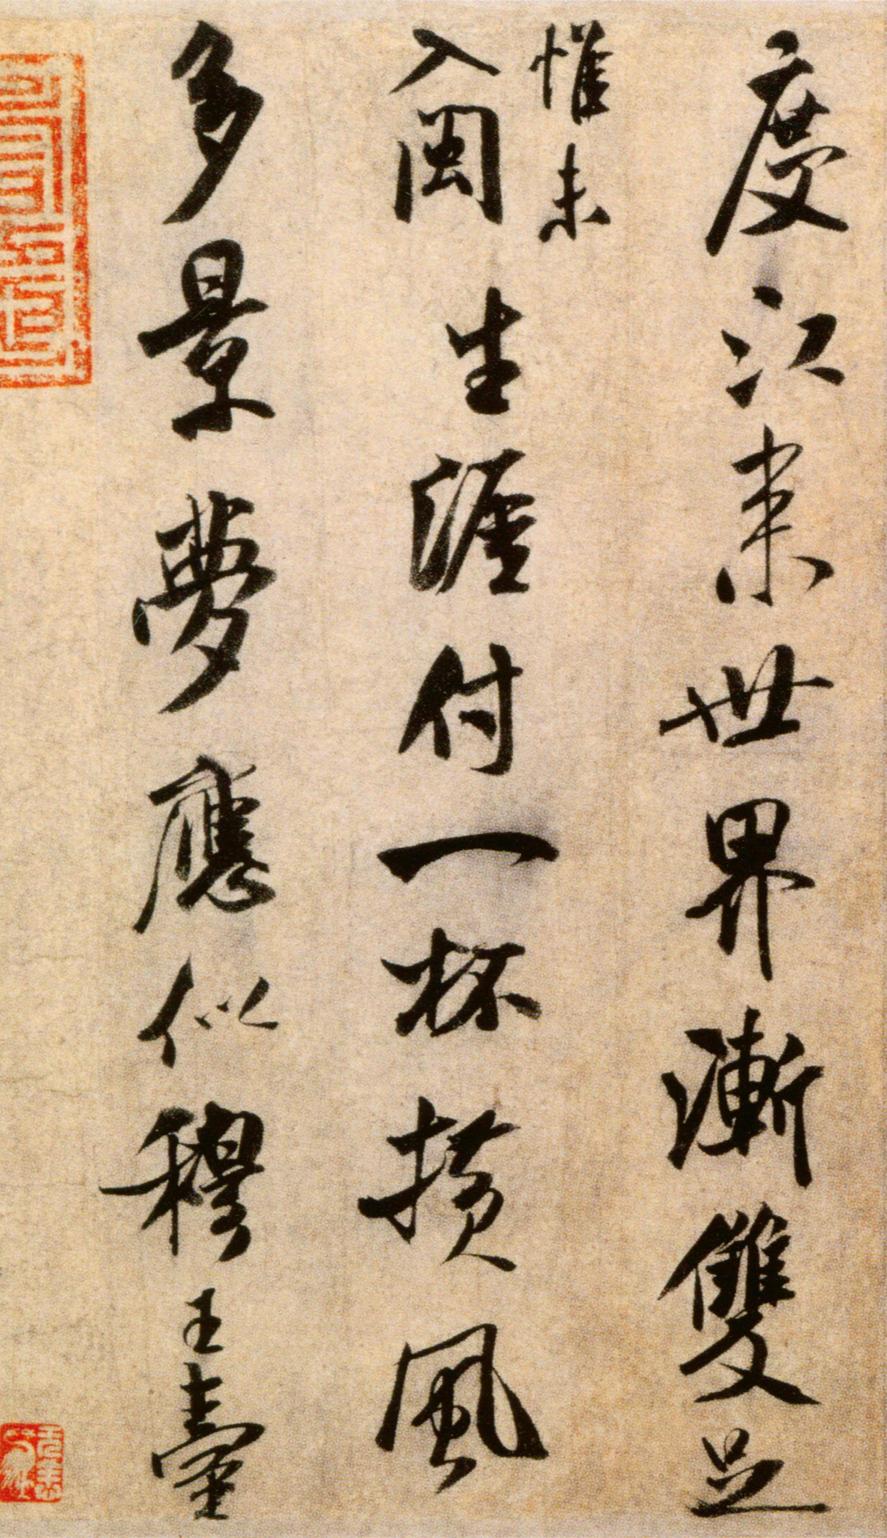 度江來世界漸雙足
惟未
入閩生涯付一杯横風
多景夢應似穆王臺